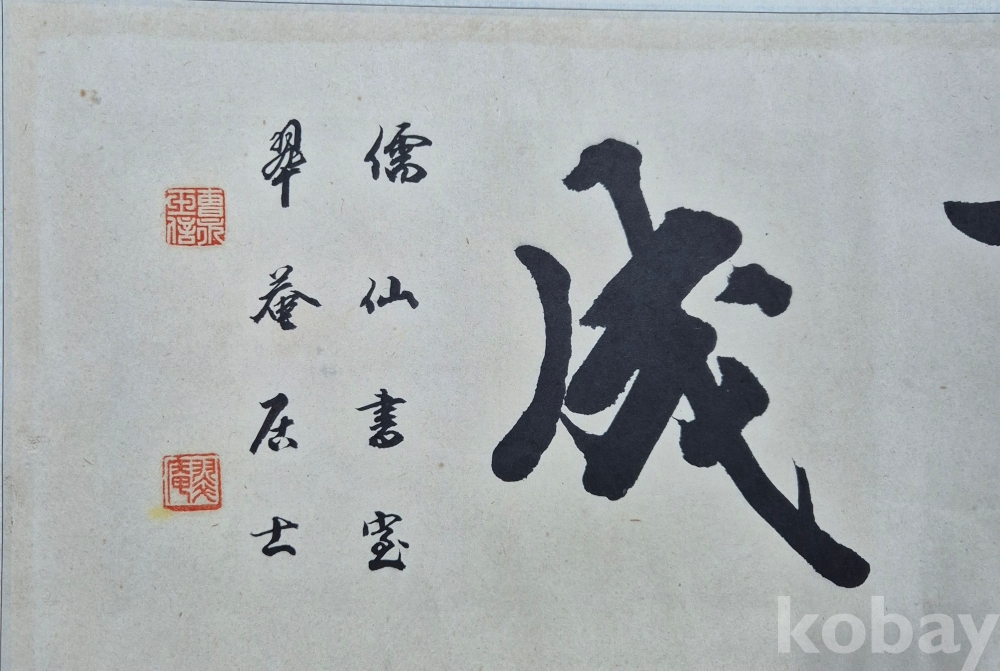 成
儒仙書室
翠菴居士
翠庵
kobay